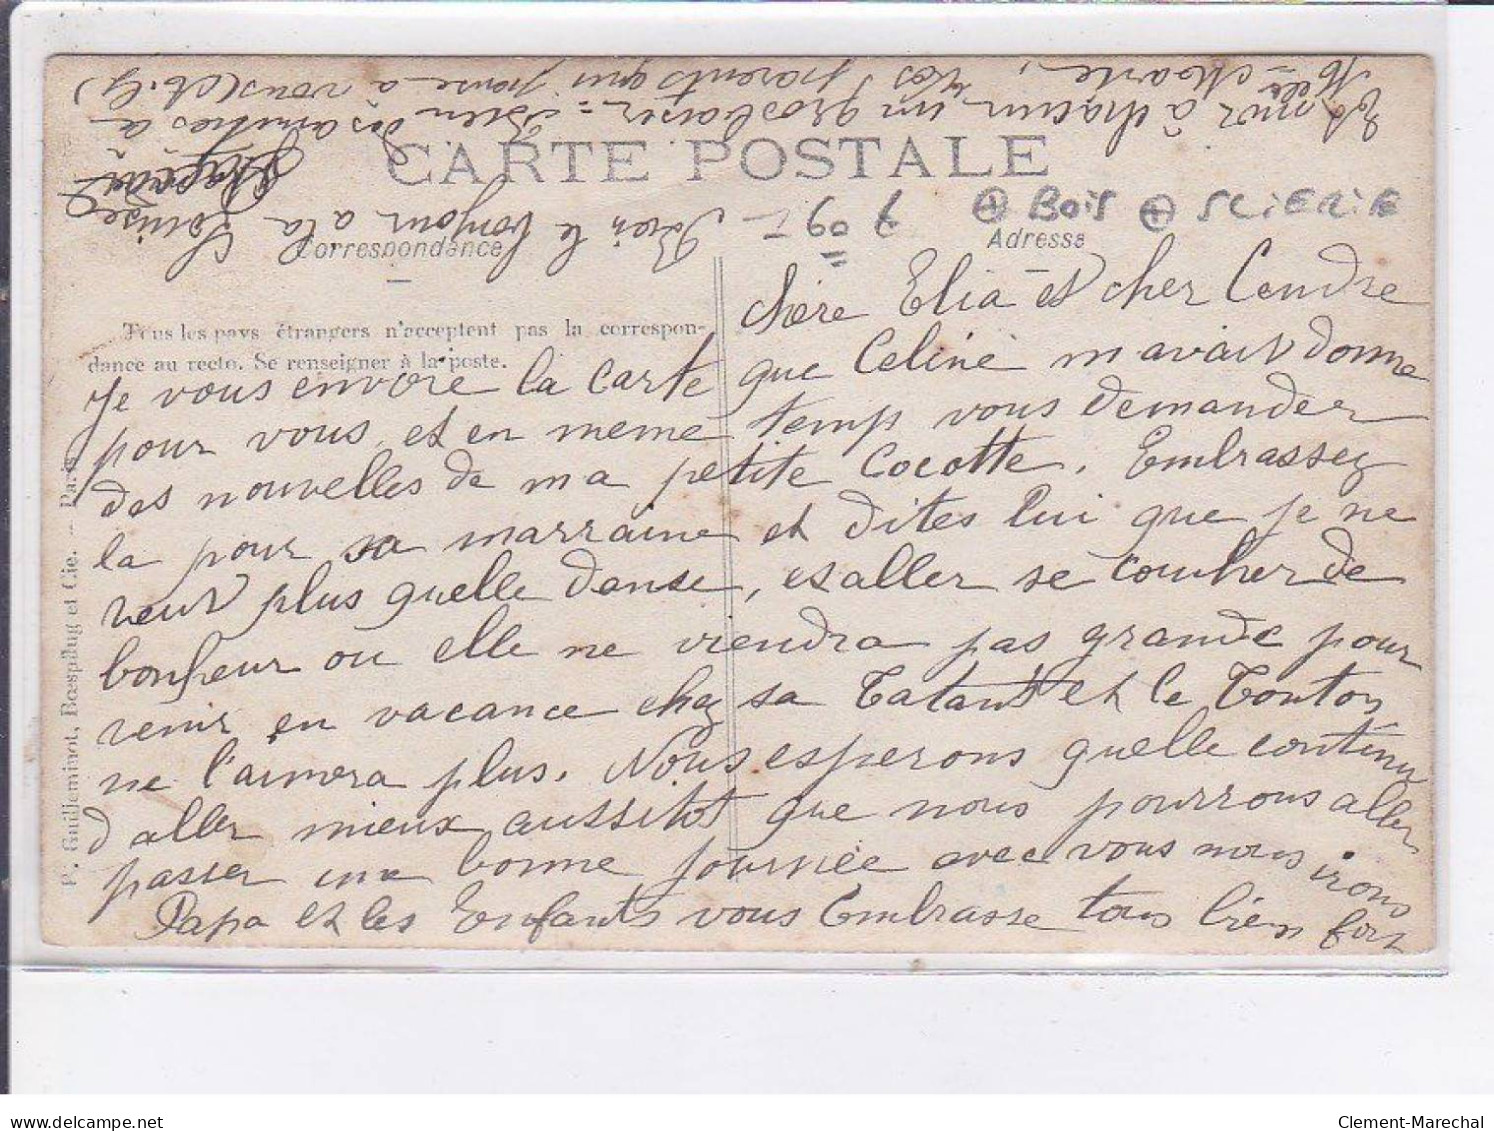 CARTE POSTALE
Correspondance
Adresse
⊕ BOIS ⊕ SCIERIE
Tous les pays étrangers n'acceptent pas la correspon-
dance au recto. Se renseigner à la poste.
P. Guilleminot, Bœspflug et Cie. — Paris
Chère Elia et cher Cendre
Je vous envoie la carte que Celine m avait donne
pour vous et en meme temp vous demander
des nouvelles de ma petite Cocotte. Embrassez
la pour sa marraine et dites lui que je ne
veut plus quelle danse, et aller se coucher de
bonheur ou elle ne viendra pas grande pour
venir en vacance chez sa Tatant et le Tonton
ne l'aimera plus. Nous esperons quelle continu
d aller mieux aussitot que nous pourrons aller
passer une bonne journée avec vous nous irons
Papa et les Enfants vous Embrasse tous bien fort
à chacun un gros baiser = Bien des amities a
Marie, parents qui pense a vous
le bonjour a la Louise